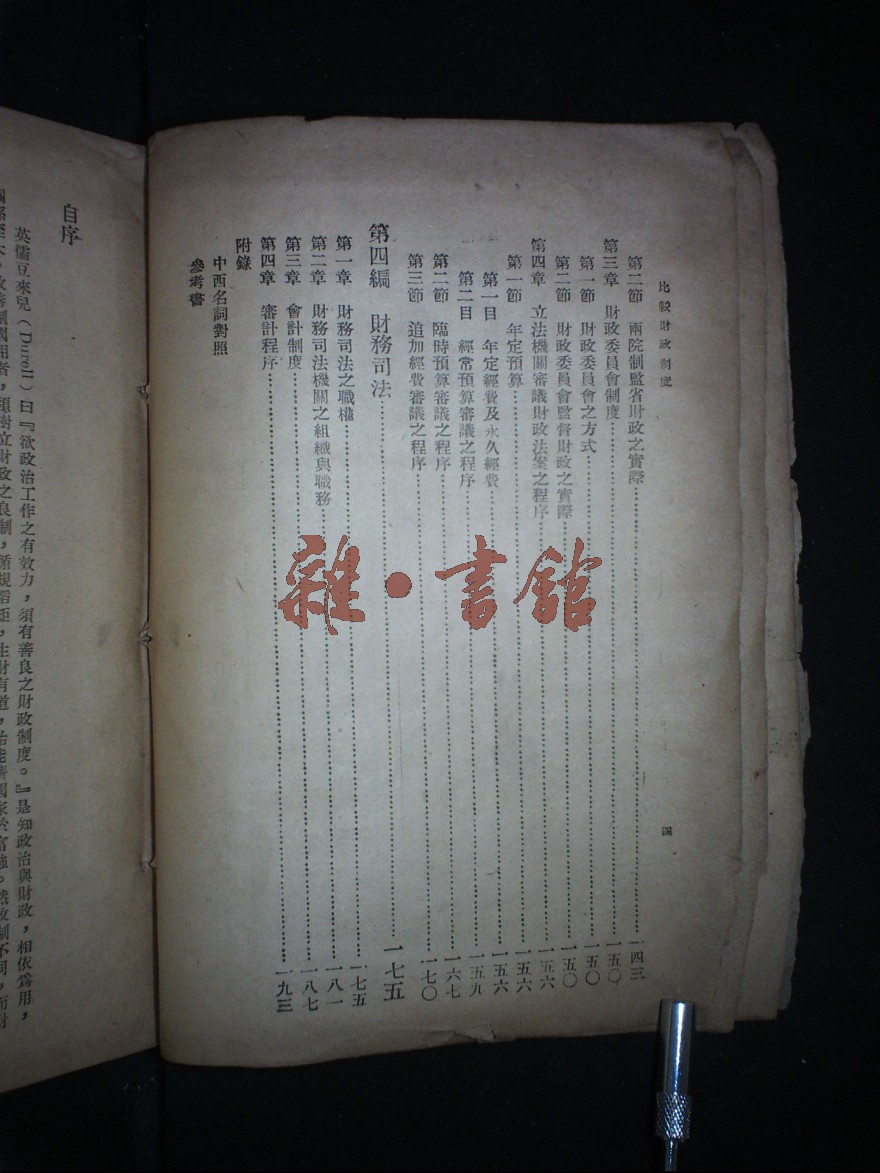 比較財政制度
四
第二節 兩院制監省財政之實際 一四三
第三章 財政委員會制度 一五〇
第一節 財政委員會之方式 一五〇
第二節 財政委員會監督財政之實際 一五〇
第四章 立法機關審議財政法案之程序 一五六
第一節 年定預算 一五六
第一目 年定經費及永久經費 一五六
第二目 經常預算審議之程序 一五九
第二節 臨時預算審議之程序 一六七
第三節 追加經費審議之程序 一七〇
第四編 財務司法 一七五
第一章 財務司法之職權 一七五
第二章 財務司法機關之組織與職務 一八一
第三章 會計制度 一八七
第四章 審計程序 一九三
附錄
中西名詞對照
參考書
雜·書館
自序
英儒豆來兒(Durell)曰『欲政治工作之有效力,須有善良之財政制度。』是知政治與財政,相依爲用,
須樹立財政之良制,循規蹈矩,生財有道,始能濟國家於富強。然政制不同,而財